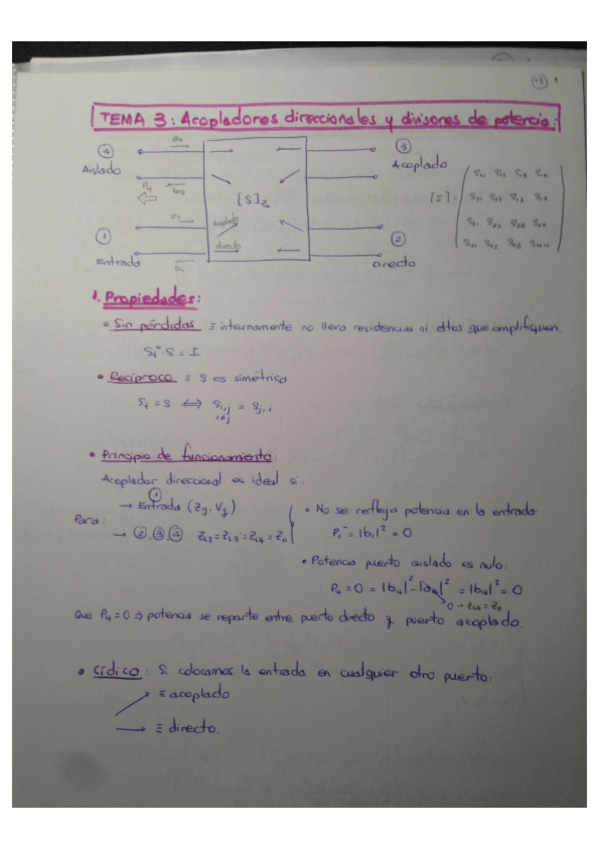 TEMA 3: Acopladores direccionales y divisores de potencia:
4
Aislado
3
Acoplado
[S]
acoplado
directo
[S] =
1
Entrada
2
Directo
1. Propiedades:
• Sin pérdidas ≡ internamente no lleva resistencias ni que amplifiquen.
St* · S = I
• Recíproco ≡ S es simétrica
St = S ⟺ Si,j = Sj,i
i≠j
• Principio de funcionamiento:
Acoplador direccional es ideal si:
Para:
1
→ Entrada (Zg, Vg)
→ 2, 3, 4 ZL2 = ZL3 = ZL4 = Z0
• No se refleja potencia en la entrada:
P1⁻ = |b1|² = 0
• Potencia puerto aislado es nulo:
P4 = 0 = |b4|² - |a4|² = |b4|² = 0
0 → ZL4 = Z0
Que P4 = 0 ⇒ potencia se reparte entre puerto directo y puerto acoplado.
• Cíclico: Si colocamos la entrada en cualquier otro puerto:
≡ acoplado
≡ directo.